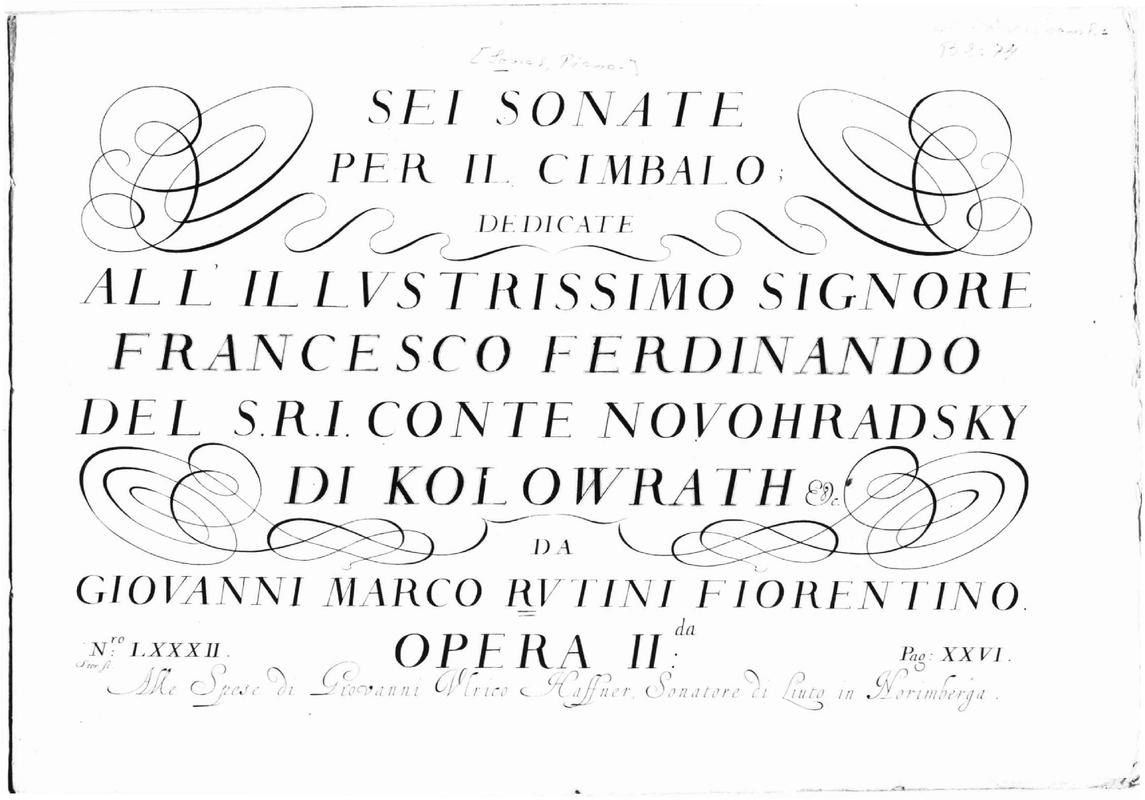 [Sonat, Piano-]
SEI SONATE
PER IL CIMBALO;
DEDICATE
ALL' ILLVSTRISSIMO SIGNORE
FRANCESCO FERDINANDO
DEL S.R.I. CONTE NOVOHRADSKY
DI KOLOWRATH &c.
DA
GIOVANNI MARCO RVTINI FIORENTINO.
N:ro LXXXII. OPERA II:da Pag: XXVI.
Alle Spese di Giovanni Vlrico Haffner, Sonatore di Liuto in Norimberga.